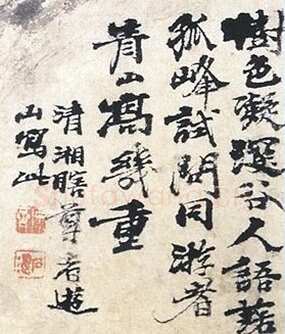 樹色凝深谷人語落
孤峰試問同游者
青山高幾重
清湘瞎尊者遊
山寫此